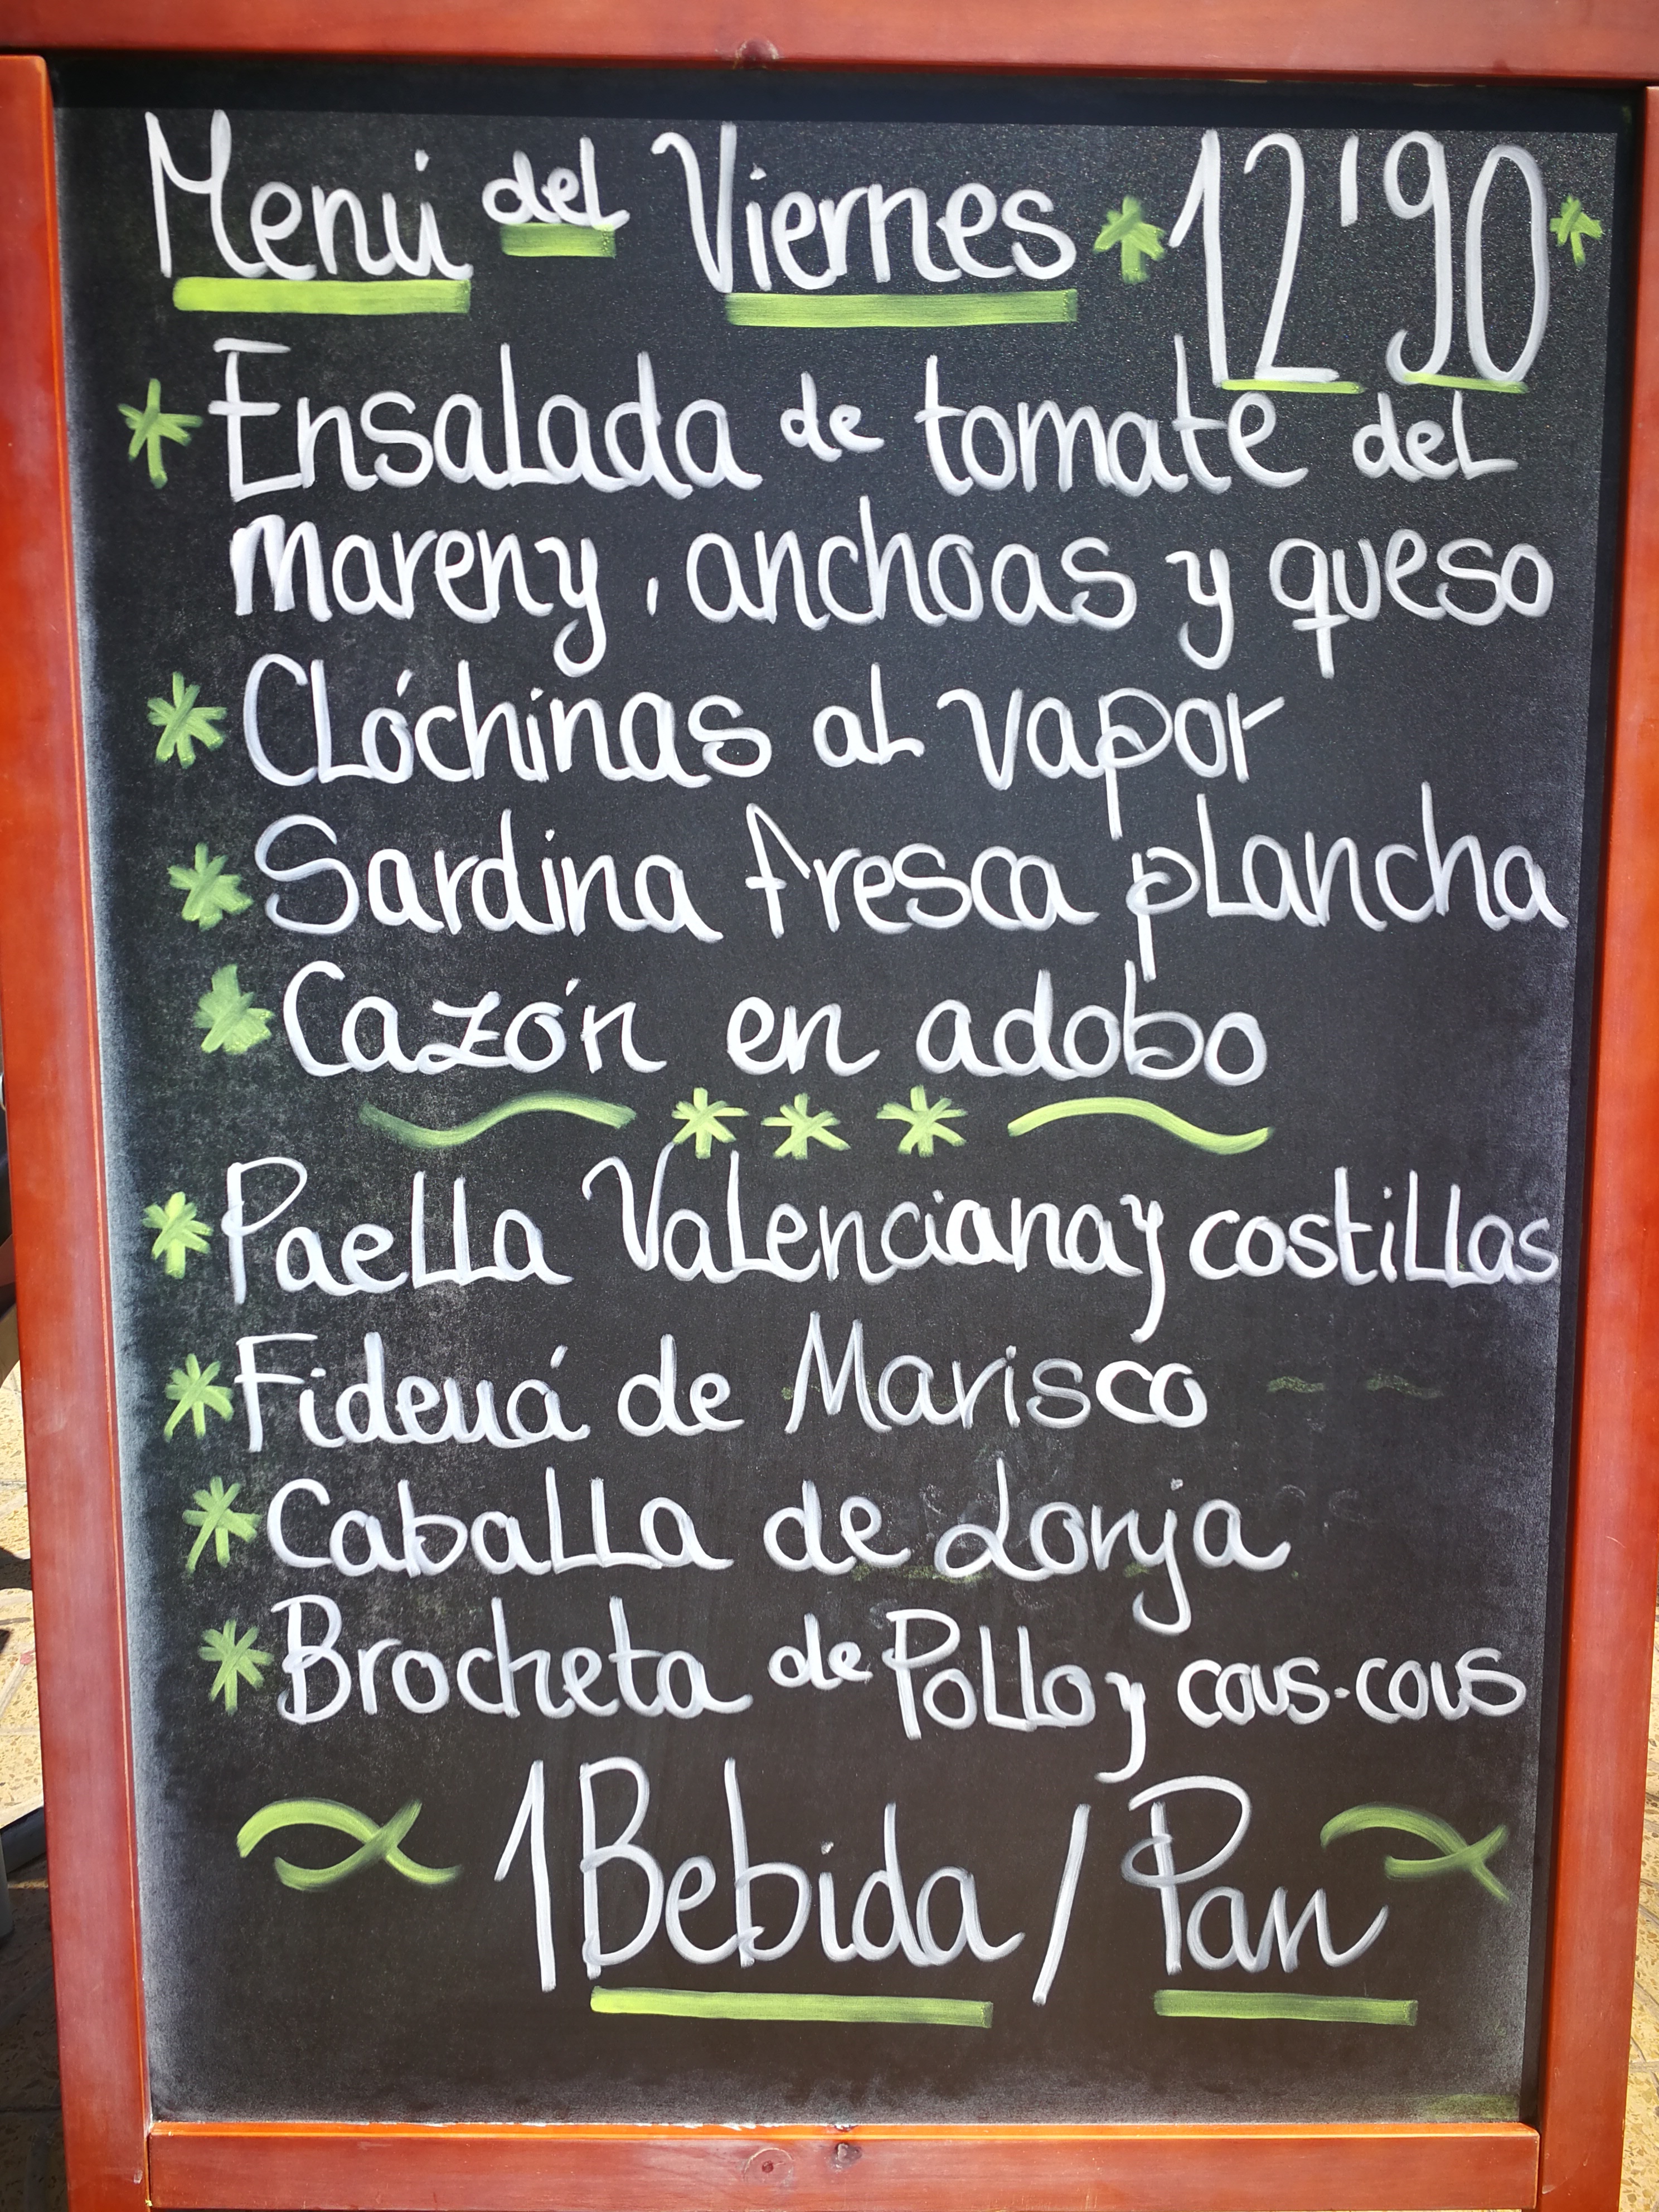 Menú del Viernes * 12'90 *
* Ensalada de tomate del
mareny, anchoas y queso
* Clóchinas al vapor
* Sardina fresca plancha
* Cazón en adobo
* * *
* Paella Valenciana y costillas
* Fideuá de Marisco
* Caballa de Lonja
* Brocheta de Pollo y cous-cous
1 Bebida / Pan